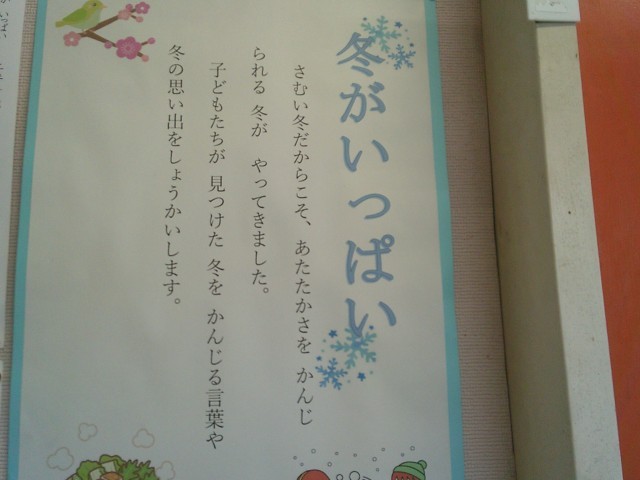 冬がいっぱい
さむい冬だからこそ、あたたかさを かんじ
られる 冬が やってきました。
子どもたちが 見つけた 冬を かんじる言葉や
冬の思い出をしょうかいします。